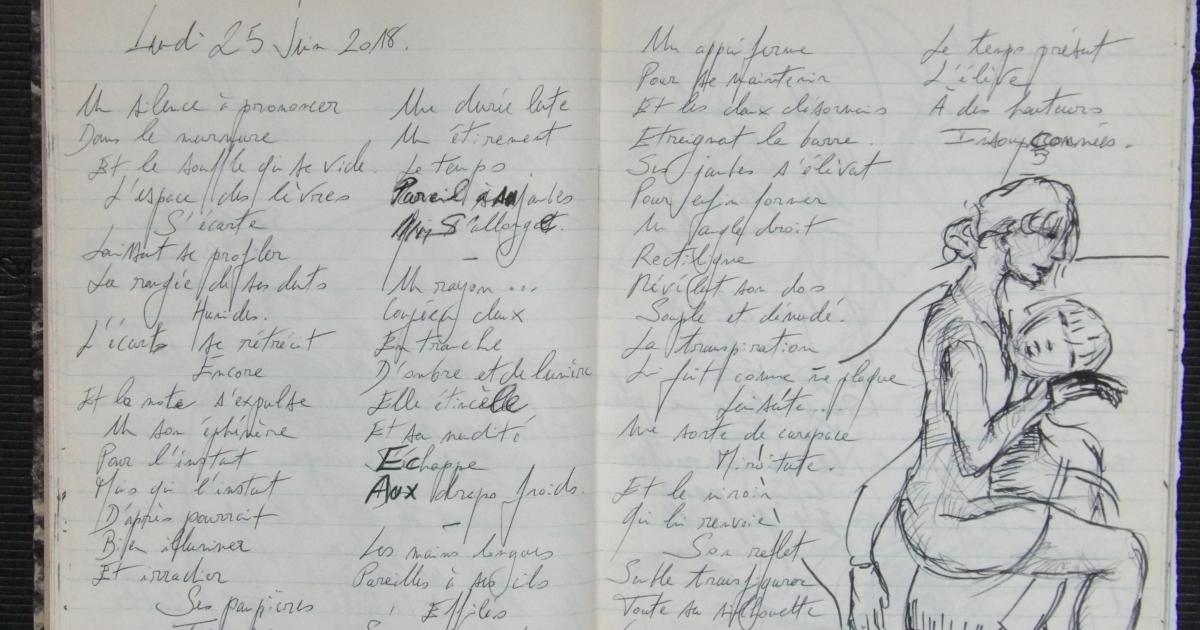 Lundi 25 Juin 2018.
Un silence à prononcer
Dans le murmure
Et le souffle qui se vide.
L'espace des lèvres
S'écarte
Laissant se profiler
La rangée de ses dents
Humides.
L'écart se rétrécit
Encore
Et la note s'expulse
Un son éphémère
Pour l'instant
Mais qui l'instant
D'après pourrait
Bien illuminer
Et irradier
Ses paupières
Une durée lente
Un étirement
Le temps
Pareil à sa jambes
S'allonge.
–
Un rayon ...
Coupé en deux
En tranche
D'ombre et de lumière
Elle étincelle
Et sa nudité
Echappe
Aux draps froids.
–
Les mains longues
Pareilles à ses cils
Effilés
Un appui ferme
Pour se maintenir
Et les deux désormais
Etreignant la barre.
Ses jambes s'élèvent
Pour enfin former
Un angle droit
Rectiligne
Révélant son dos
Souple et dénudé.
La transpiration
Lui fait comme une plaque
Luisante...
Une sorte de carapace
Miroitante.
Et le miroir
Qui lui renvoie
Son reflet
Semble transfigurer
Toute sa silhouette
Le temps présent
L'élève
À des hauteurs
Insoupçonnées.